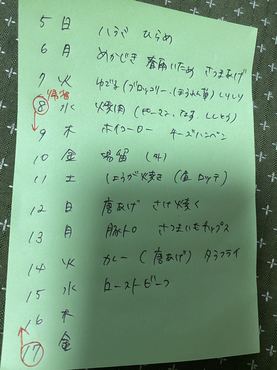 5 日 ハラミ ひらめ
6 月 めかじき 春雨いため さつまあげ
7 火 ゆでブタ ブロッコリー、ほうれん草 しりしり
8 水 焼肉 (ピーマン、なす、ししとう)
9 木 ホイコーロー チーズハンペン
10 金
11 土 しょうが焼き
12 日 唐あげ さけ 焼く
13 月 豚トロ さつまいもチップス
14 火 カレー (唐あげ) タラフライ
15 水 ローストビーフ
16 木
17 金